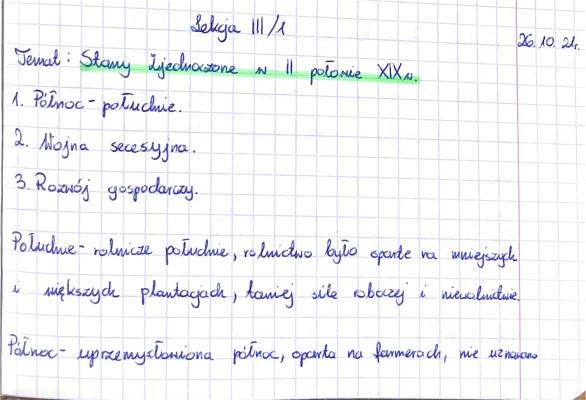 Lekcja III/1
26.10.21r.
Temat: Stany Zjednoczone w II połowie XIXw.
1. Północ - południe.
2. Wojna secesyjna.
3. Rozwój gospodarczy.
Południe - rolnicze południe, rolnictwo było oparte na mniejszych
i większych plantacjach, taniej sile roboczej i niewolnictwie.
Północ - uprzemysłowiona północ, oparta na farmerach, nie uznawano